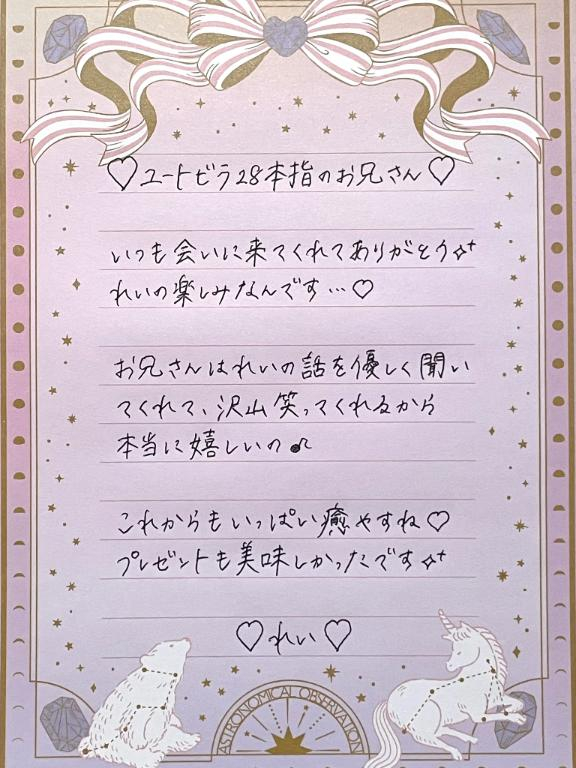 ♡ユートピラ28本指のお兄さん♡
いつも会いに来てくれてありがとう✧⁺
れいの楽しみなんです…♡
お兄さんはれいの話を優しく聞い
てくれて、沢山笑ってくれるから
本当に嬉しいの♪
これからもいっぱい癒やすね♡
プレゼントも美味しかったです✧⁺
♡れい♡
ASTRONOMICAL OBSERVATION